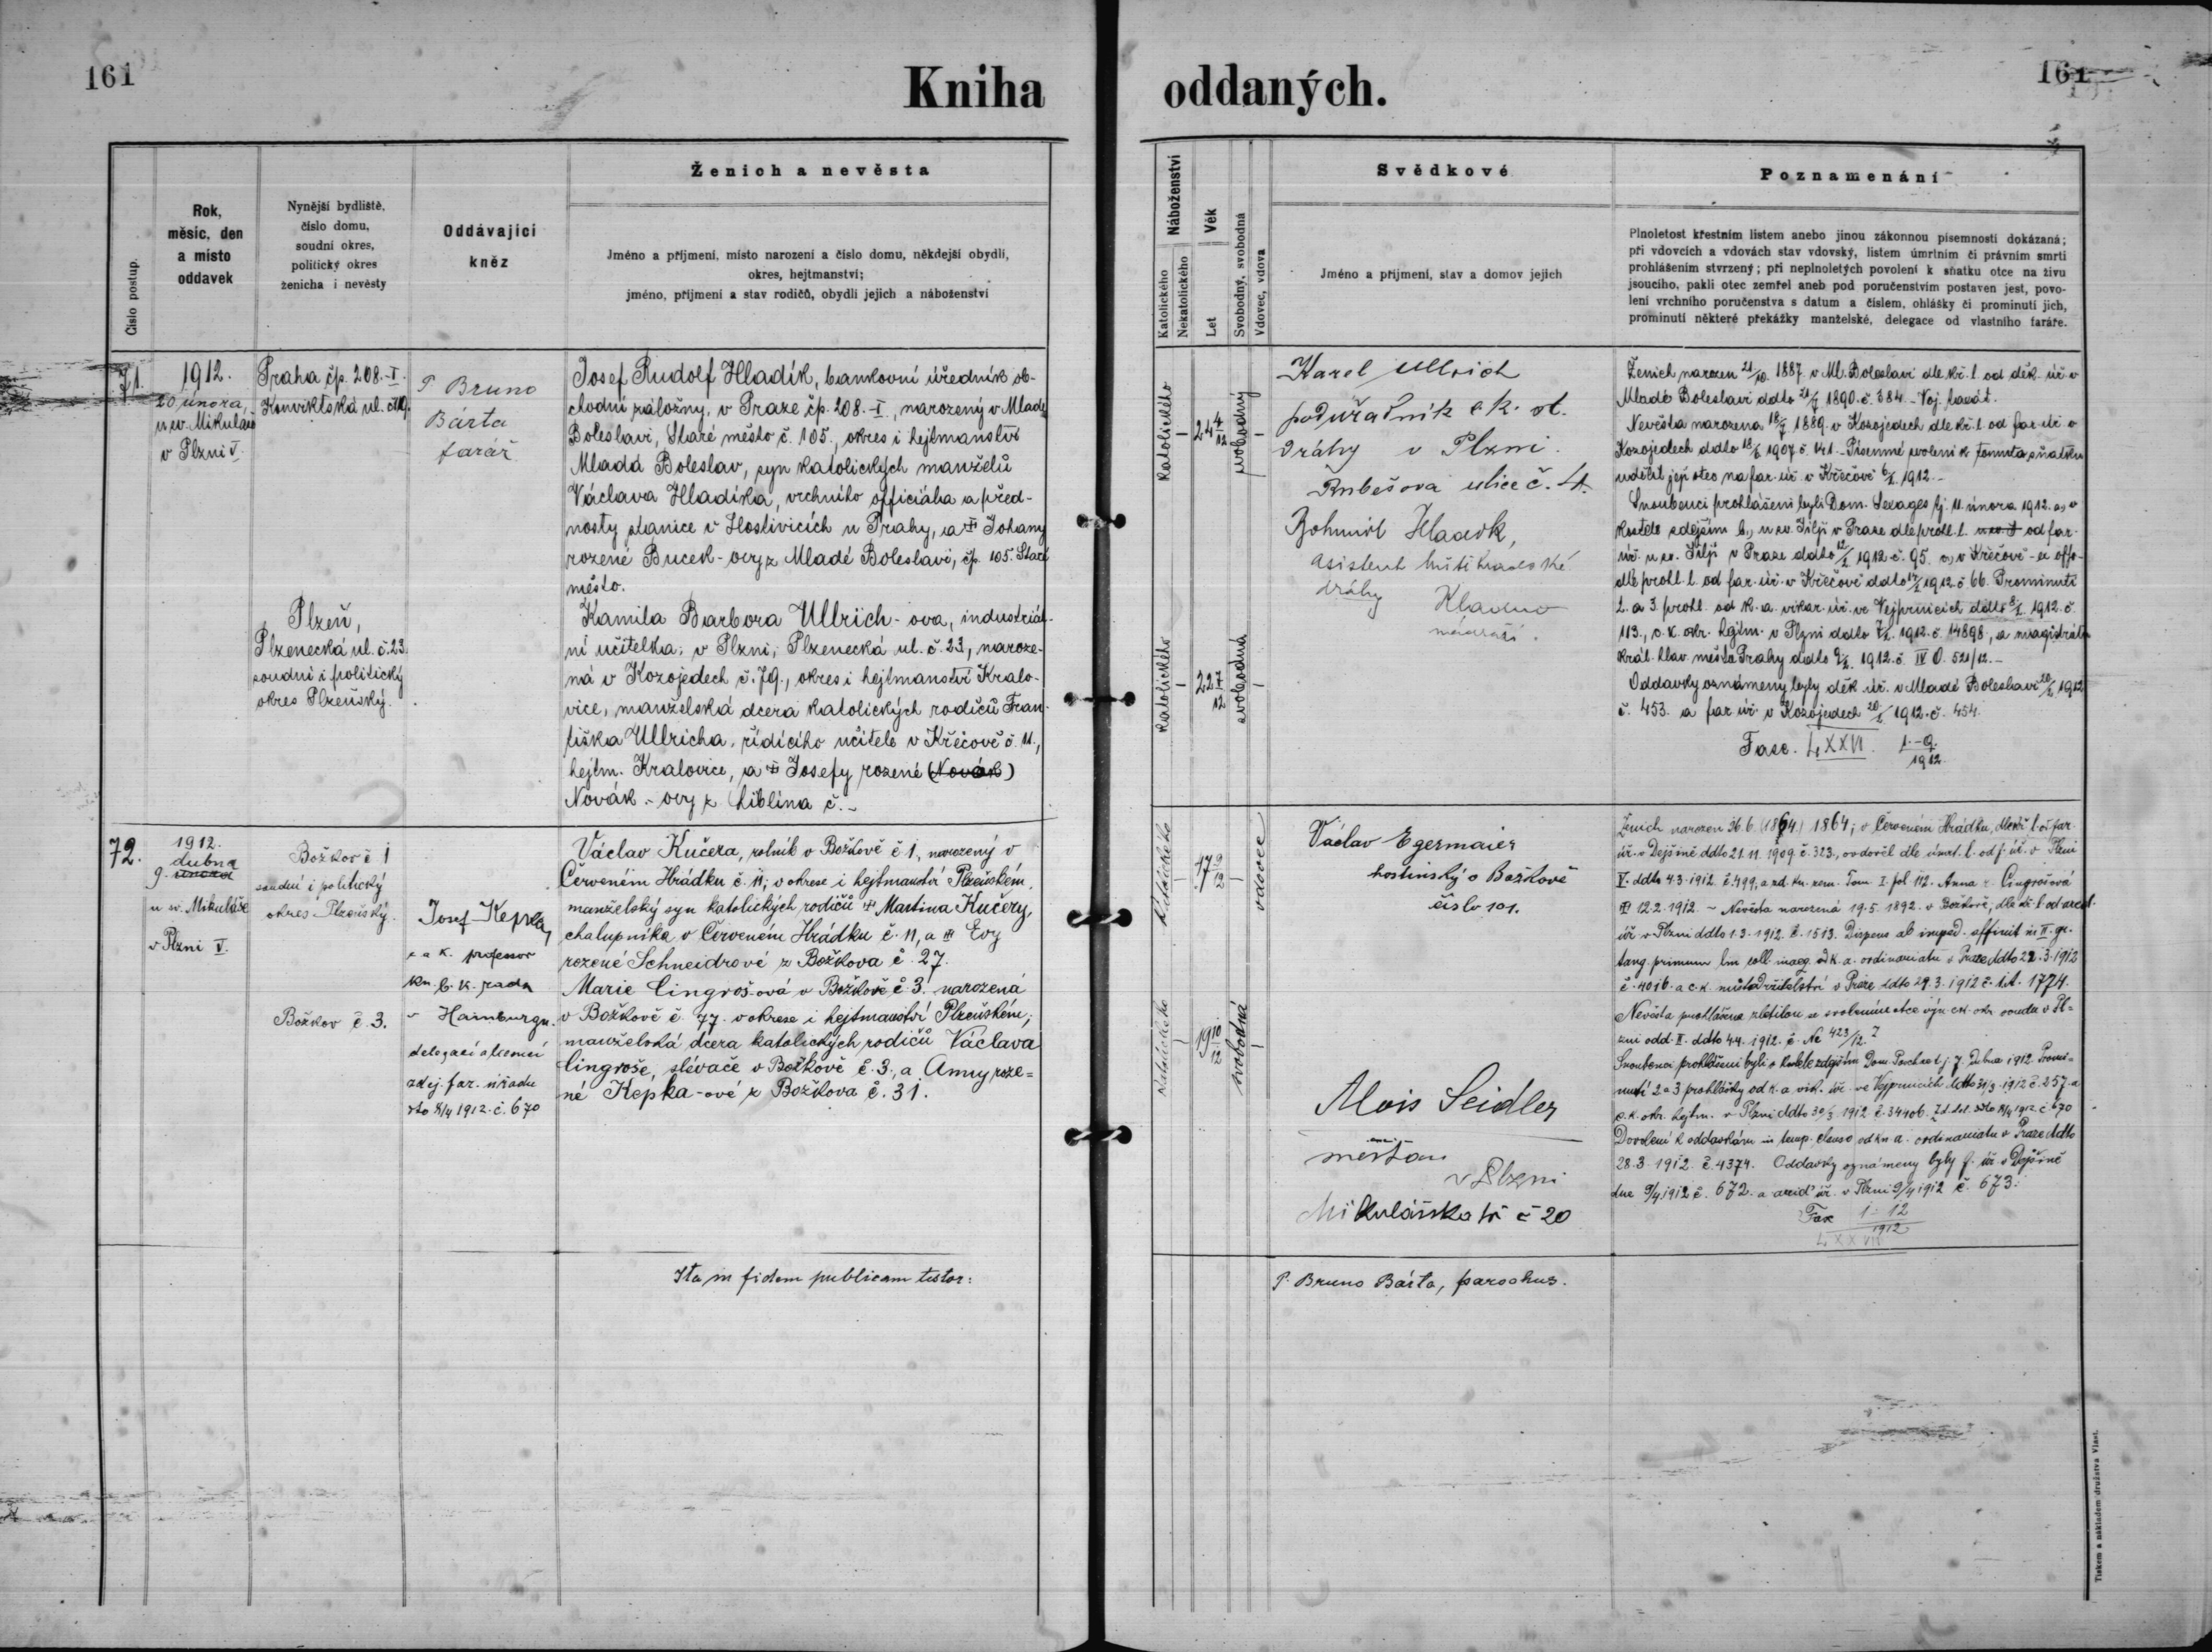 161
Kniha oddaných.
161
Číslo postup.
Rok,
měsíc, den
a místo
oddavek
Nynější bydliště,
číslo domu,
soudní okres,
politický okres
ženicha i nevěsty
Oddávající
kněz
Ženich a nevěsta
Jméno a příjmení, místo narození a číslo domu, někdejší obydlí,
okres, hejtmanství;
jméno, příjmení a stav rodičů, obydlí jejich a náboženství
Náboženství
Katolického
Nekatolického
Věk
Let
Svobodný, svobodná
Vdovec, vdova
Svědkové
Jméno a příjmení, stav a domov jejich
Poznamenání
Plnoletost křestním listem anebo jinou zákonnou písemností dokázaná;
při vdovcích a vdovách stav vdovský, listem úmrtním či právním smrti
prohlášením stvrzený; při neplnoletých povolení k sňatku otce na živu
jsoucího, pakli otec zemřel aneb pod poručenstvím postaven jest, povo-
lení vrchního poručenstva s datum a číslem, ohlášky či prominutí jich,
prominutí některé překážky manželské, delegace od vlastního faráře.
71.
1912.
20 února,
u sv. Mikuláše
v Plzni V.
Praha čp. 208.-I.
Konviktská ul.
P Bruno
Bárta
farář
Josef Rudolf Hladík, bankovní úředník ob-
chodní záložny, v Praze čp. 208.-I., narozený v Mladé
Boleslavi, Staré město č. 105., okres i hejtmanství
Mladá Boleslav, syn katolických manželů
Václava Hladíka, vrchního officiála a před-
nosty stanice v Hostivicích u Prahy, a Johany
rozené Bucek-ovy z Mladé Boleslavi, čp. 105. Staré
město.
Plzeň,
Plzenecká ul. č. 23.
soudní i politický
okres Plzeňský.
Kamila Barbora Ullrich-ova, industriál-
ní učitelka, v Plzni, Plzenecká ul. č. 23, naroze-
ná v Kozojedech č. 79., okres i hejtmanství Kralo-
vice, manželská dcera katolických rodičů Fran-
tiška Ullricha, řídícího učitele v Křečově č. 11.,
hejtm. Kralovice, a Josefy rozené (Novák)
Novák-ovy z Liblína č. -
Katolického
-
24 4/12
svobodný
-
Katolického
-
22 7/12
svobodná
-
Karel Ullrich
podúředník c. k. st.
dráhy v Plzni.
Rubešova ulice č. 4.
Bohumil Hladík,
asistent buštěhradské
dráhy Kladno
nádraží.
Ženich narozen 21/10. 1887. v Ml. Boleslavi dle kř. l. od děk. úř. v
Mladé Boleslavi ddto 1890. č. 384. -
Nevěsta narozena 1889. v Kozojedech dle kř. l. od far. úř. v
Kozojedech ddto 1907 č. 141. - Písemné svolení k tomuto sňatku
udělil její otec na far. úř. v Křečově 1912. -
Snoubenci prohlášeni byli Dom. Sexages. tj. 11. února 1912. a, v
kostele zdejším b, u sv. Jiljí v Praze dle prohl. l. od far.
úř. u sv. Jiljí v Praze ddto 1912 č. 95. c, v Křečově - ex offo -
dle prohl. l. od far. úř. v Křečově ddto 1912 č 66. Prominutí
2. a 3. prohl. od k. a. vikar. úř. ve Vejprnicích ddto 1912. č.
113., c. k. okr. hejtm. v Plzni ddto 1912. č. 14898, a magistrátu
král. hlav. města Prahy ddto 1912. č. IV O. 521/12. -
Oddavky oznámeny byly děk. úř. v Mladé Boleslavi 1912
č. 453. a far. úř. v Kozojedech 1912. č. 454.
Fasc. LXXVI. 1.-9. 1912.
72.
1912.
dubna
9. února
u sv. Mikuláše
v Plzni V.
Božkov č 1
soudní i politický
okres Plzeňský.
Božkov č. 3.
Josef Kepka,
c. a k. professor
kn. b. k. rada
v Hamburgu.
delegací
zdej. far. úřadu
dto 8/4 1912. č. 670
Václav Kučera, rolník v Božkově č 1, narozený v
Červeném Hrádku č. 11; v okrese i hejtmanství Plzeňském,
manželský syn katolických rodičů Martina Kučery,
chalupníka v Červeném Hrádku č. 11, a Evy
rozené Schneidrové z Božkova č. 27.
Marie Cingroš-ová v Božkově č 3. narozená
v Božkově č. 77. v okrese i hejtmanství Plzeňském;
manželská dcera katolických rodičů Václava
Cingroše, slévače v Božkově č. 3., a Anny roze=
né Kepka-ové z Božkova č. 31.
Katolického
-
47 9/12
-
vdovec
Katolického
-
19 10/12
svobodná
-
Václav Egermaier
hostinský v Božkově
číslo 101.
Alois Seidler
měšťan
v Plzni
Mikulášská tř č 20
Ženich narozen 26. 6. (1864.) 1864; v Červeném Hrádku, dle kř. l. od far.
úř. v Dejšině ddto 21. 11. 1909. č. 323., ovdověl dle úmrt. l. od f. úř. v Plzni
V. ddto 4.3.1912. č. 499, a zd. kn. zem. Tom. I. fol. 112. Anna r. Cingrošová
12.2.1912. - Nevěsta narozená 19.5.1892. v Božkově, dle kř. l. od arcid.
úř. v Plzni ddto 1.3.1912. č. 1513. Dispens ab imped. affinit. in II. gr.
tang. primum lin. coll. inaeq. od k. a. ordinariatu v Praze ddto 22.3.1912
č. 4016. a c. k. místodržitelství v Praze ddto 29.3.1912 č. 1774.
Nevěsta prohlášena zletilou se svolením otce výn. c.k. okr. soudu v Pl=
zni odd. II. ddto 4.4. 1912. č. Nc 423/12.
Snoubenci prohlášeni byli v kostele zdejším Dom. Paschae t. j. 7. dubna 1912. Promi=
nutí 2 a 3 prohlášky od k. a. vik. úř. ve Vejprnicích ddto 31/3. 1912 č. 257. a
c. k. okr. hejtm. v Plzni ddto 30/3. 1912 č. 34406. Zd. del. ddto 8/4 1912. č. 670
Dovolení k oddavkám in temp. clauso od kn. a. ordinariatu v Praze ddto
28.3.1912. č. 4374. Oddavky oznámeny byly f. úř. v Dejšině
dne 9/4 1912 č. 672. a arcid. úř. v Plzni 9/4 1912 č. 673.
Fasc 1-12 1912
LXXVII
Ita in fidem publicam testor:
P. Bruno Bárta, parochus.
Tiskem a nákladem družstva Vlast.